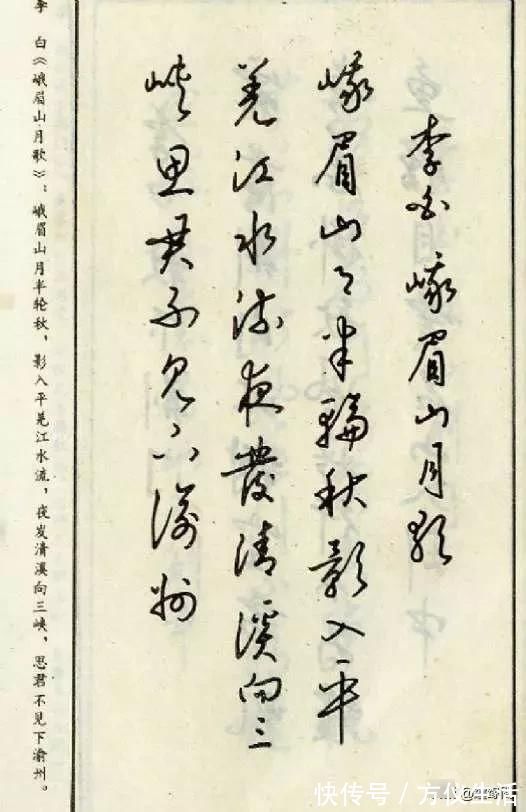 李白峨眉山月歌
峨眉山月半輪秋影入平
羌江水流夜發清溪向三
峡思君不見下渝州
李白《峨眉山月歌》：峨眉山月半轮秋，影入平羌江水流，夜发清溪向三峡，思君不见下渝州。
快传号/方仪生活